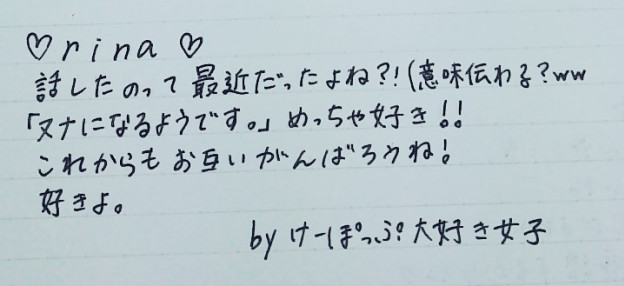 ♡rina♡
話したのって最近だったよね?!(意味伝わる?ww
「ヌナになるようです。」めっちゃ好き!!
これからもお互いがんばろうね!
好きよ。
by けーぽっぷ大好き女子